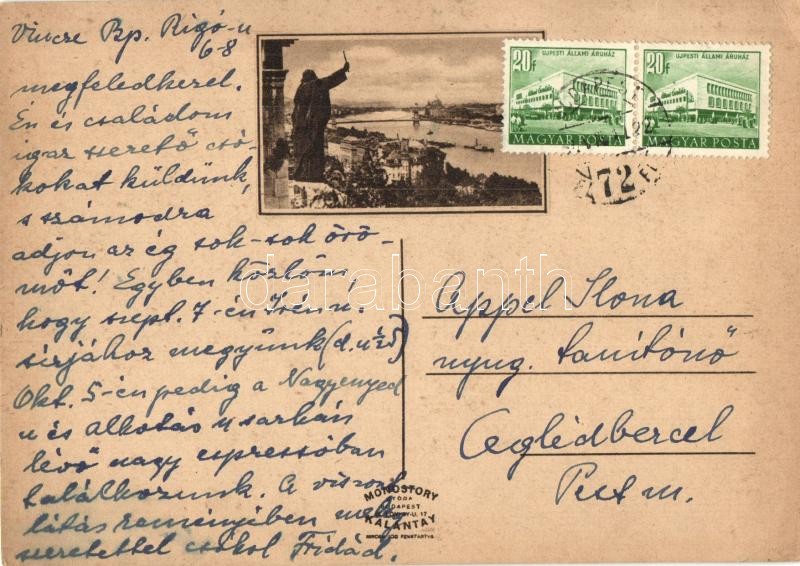 Vincze Bp. Rigó-u
6-8
megfeledkezel.
Én és családom
igaz szerető csó-
kokat küldünk,
s számodra
adjon az ég sok-sok örö-
möt! Egyben közlöm,
hogy szept. 7-én
sírjához megyünk (d.u. ½5)
Okt. 5-én pedig a Nagyenyed
u és alkotás u sarkán
lévő nagy espressóban
találkozunk. A viszont
látás reményében meleg
szeretettel csókol Fridád.
20f
UJPESTI ÁLLAMI ÁRUHÁZ
MAGYAR POSTA
20f
UJPESTI ÁLLAMI ÁRUHÁZ
MAGYAR POSTA
72
darabanth
Appel Ilona
nyug. tanítónő
Ceglédbercel
Pest m.
MONOSTORY
BUDAPEST
KALANTAY
MINDEN JOG FENNTARTVA